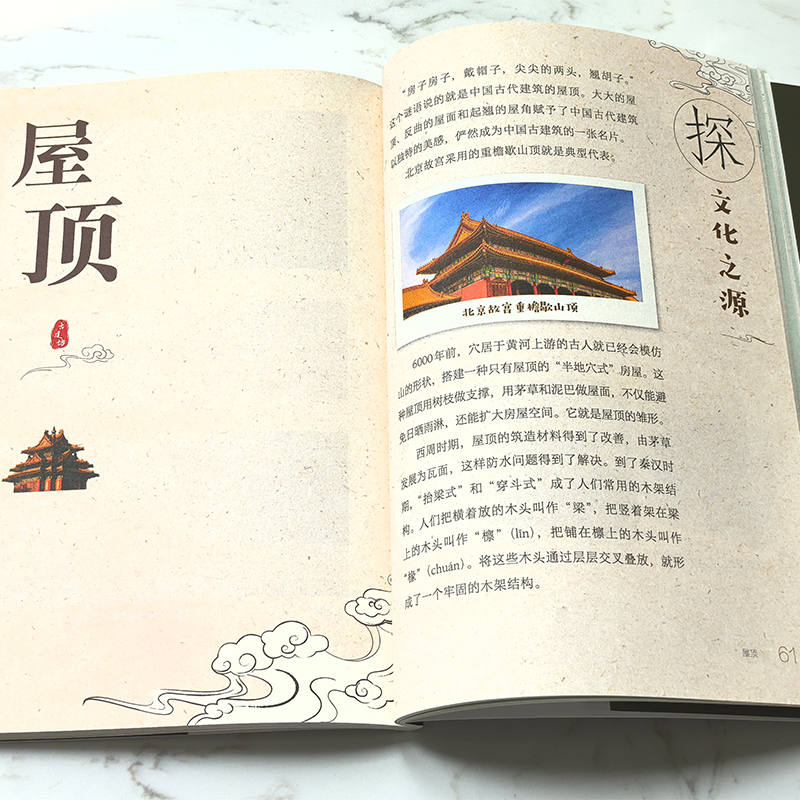 屋
顶
古建坊
“房子房子，戴帽子，尖尖的两头，翘胡子。”
这个谜语说的就是中国古代建筑的屋顶。大大的屋
顶、反曲的屋面和起翘的屋角赋予了中国古代建筑
以独特的美感，俨然成为中国古建筑的一张名片。
北京故宫采用的重檐歇山顶就是典型代表。
探
文化之源
北京故宫重檐歇山顶
6000年前，穴居于黄河上游的古人就已经会模仿
山的形状，搭建一种只有屋顶的“半地穴式”房屋。这
种屋顶用树枝做支撑，用茅草和泥巴做屋面，不仅能避
免日晒雨淋，还能扩大房屋空间。它就是屋顶的雏形。
西周时期，屋顶的筑造材料得到了改善，由茅草
发展为瓦面，这样防水问题得到了解决。到了秦汉时
期，“抬梁式”和“穿斗式”成了人们常用的木架结
构。人们把横着放的木头叫作“梁”，把竖着架在梁
上的木头叫作“檩”（lǐn），把铺在檩上的木头叫作
“椽”（chuán）。将这些木头通过层层交叉叠放，就形
成了一个牢固的木架结构。
屋顶
61